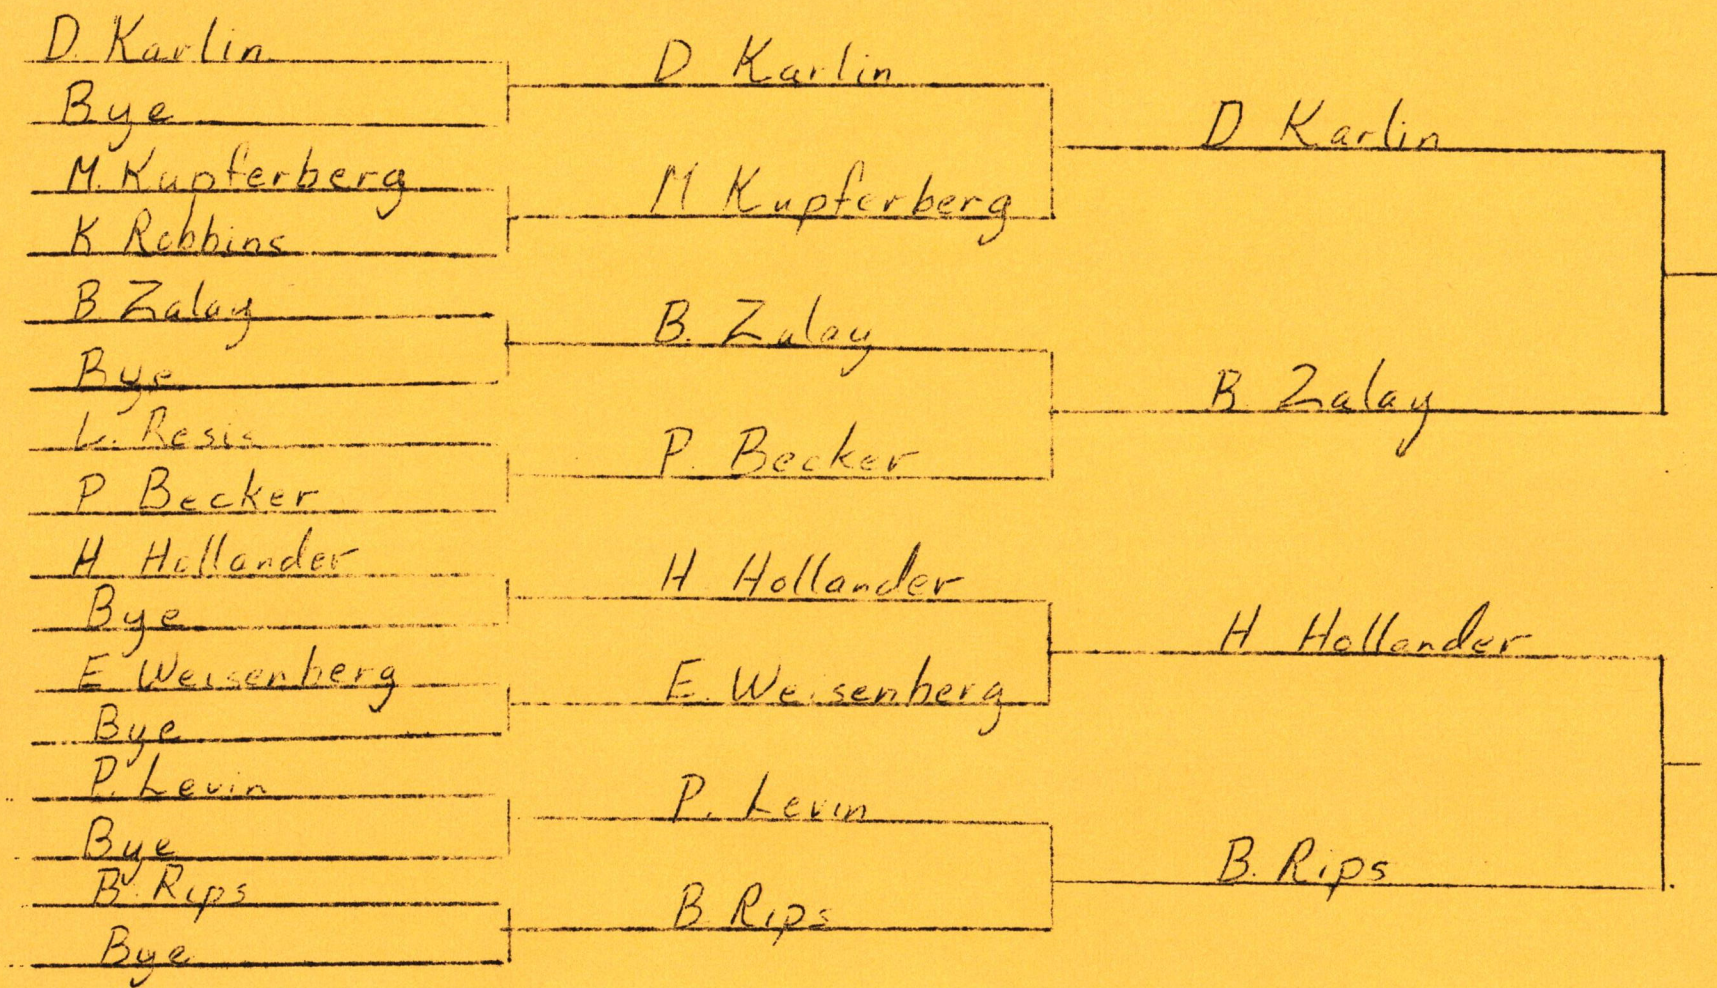 D. Karlin
Bye
M. Kupferberg
K Robbins
B. Zalay
Bye
L. Resis
P Becker
H Hollander
Bye
E Weisenberg
Bye
P. Levin
Bye
B. Rips
Bye
D Karlin
M Kupferberg
B. Zalay
P. Becker
H. Hollander
E. Weisenberg
P. Levin
B Rips
D Karlin
B Zalay
H Hollander
B. Rips